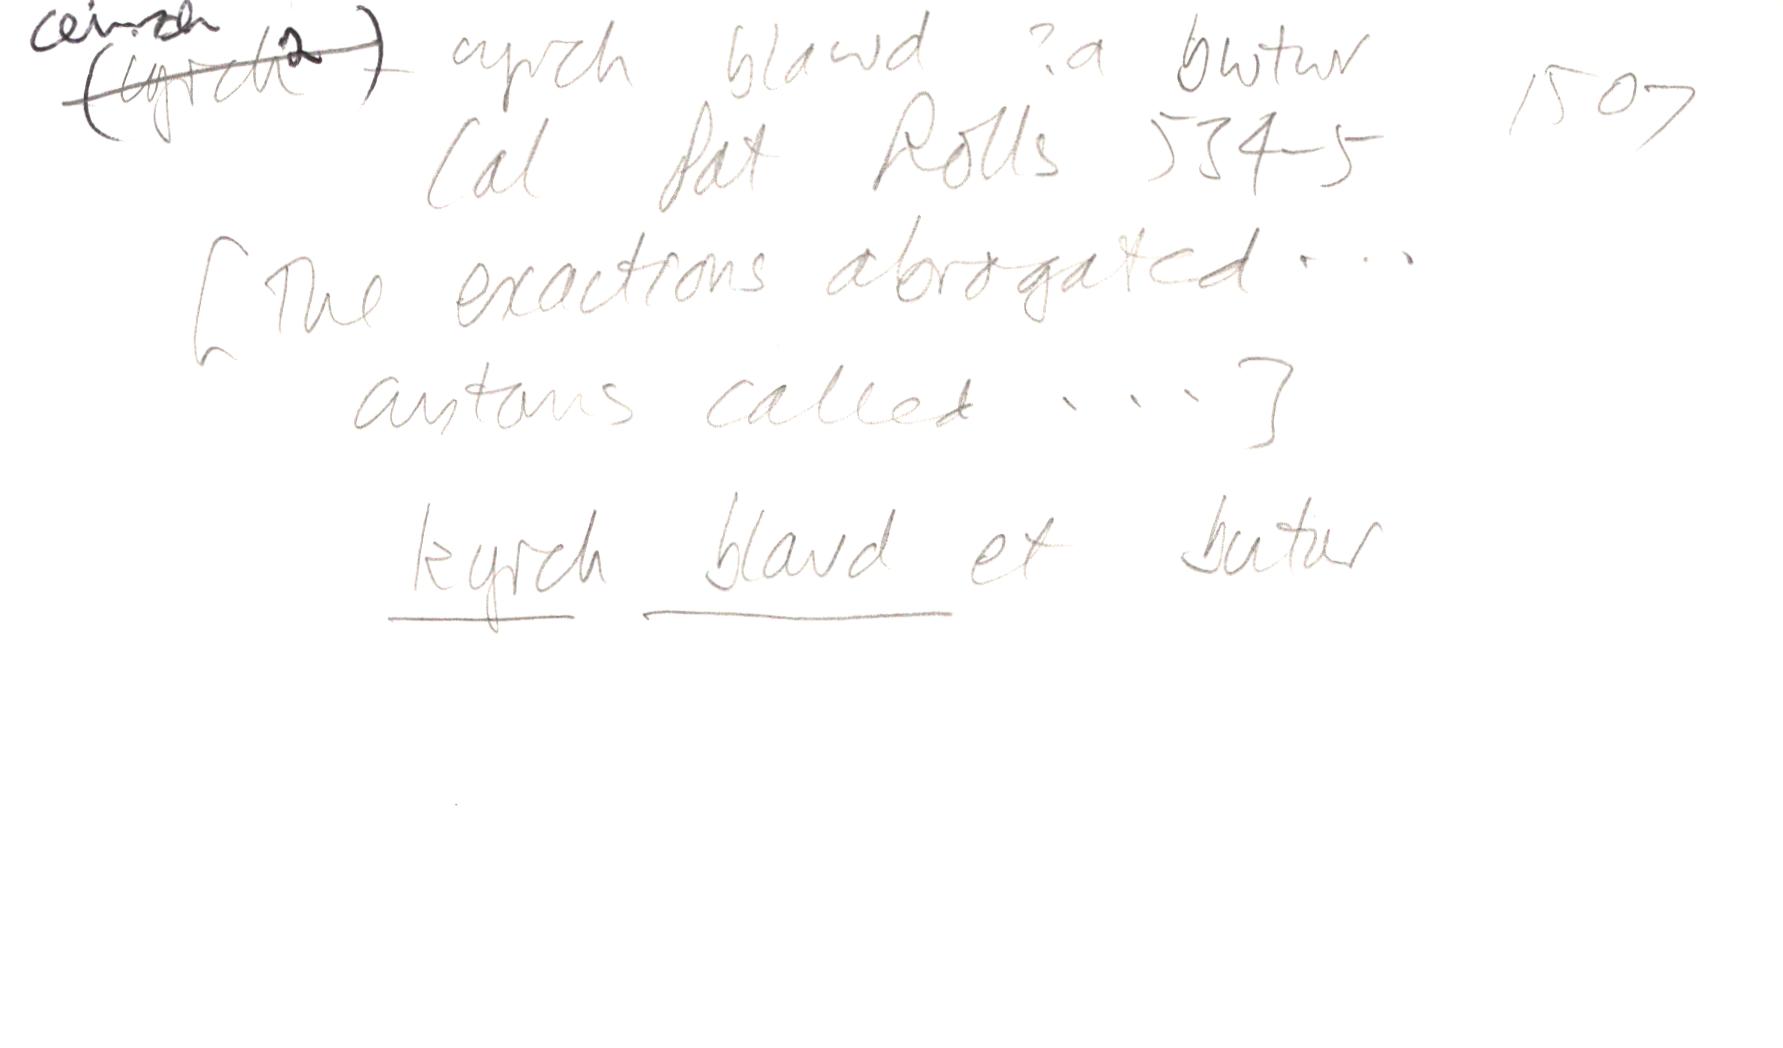 ceirch
(cyrch²) cyrch blawd ?a bwtwr 1507
Cal Pat Rolls 534-5
[The exactions abrogated ....
customs called ...]
kyrch blavd et butur